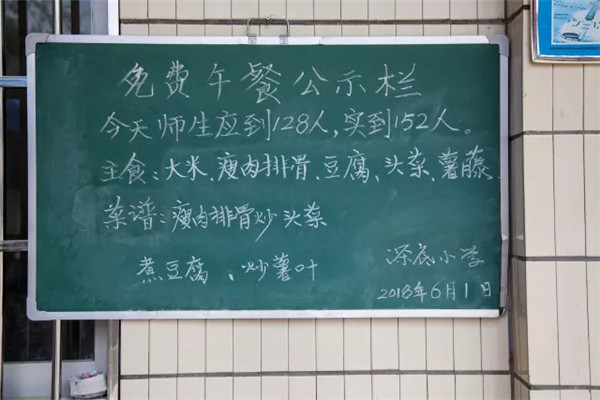 免费午餐公示栏
今天师生应到128人,实到152人。
主食:大米、瘦肉排骨、豆腐、头菜、薯藤
菜谱:瘦肉排骨炒头菜
煮豆腐、炒薯叶
深底小学
2018年6月1日